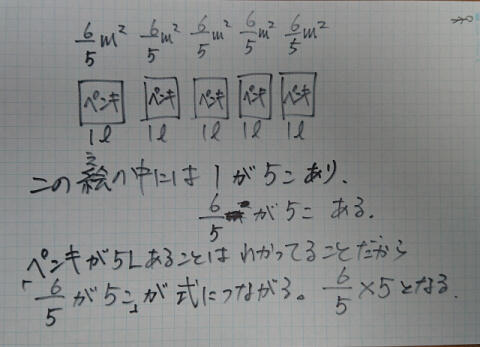 6/5 m² 6/5 m² 6/5 m² 6/5 m² 6/5 m²
ペンキ ペンキ ペンキ ペンキ ペンキ
1l 1l 1l 1l 1l
この絵の中には1が5こあり、
6/5が5こある。
ペンキが5Lあることはわかってることだから
「6/5が5こ」が式につながる。6/5×5となる。